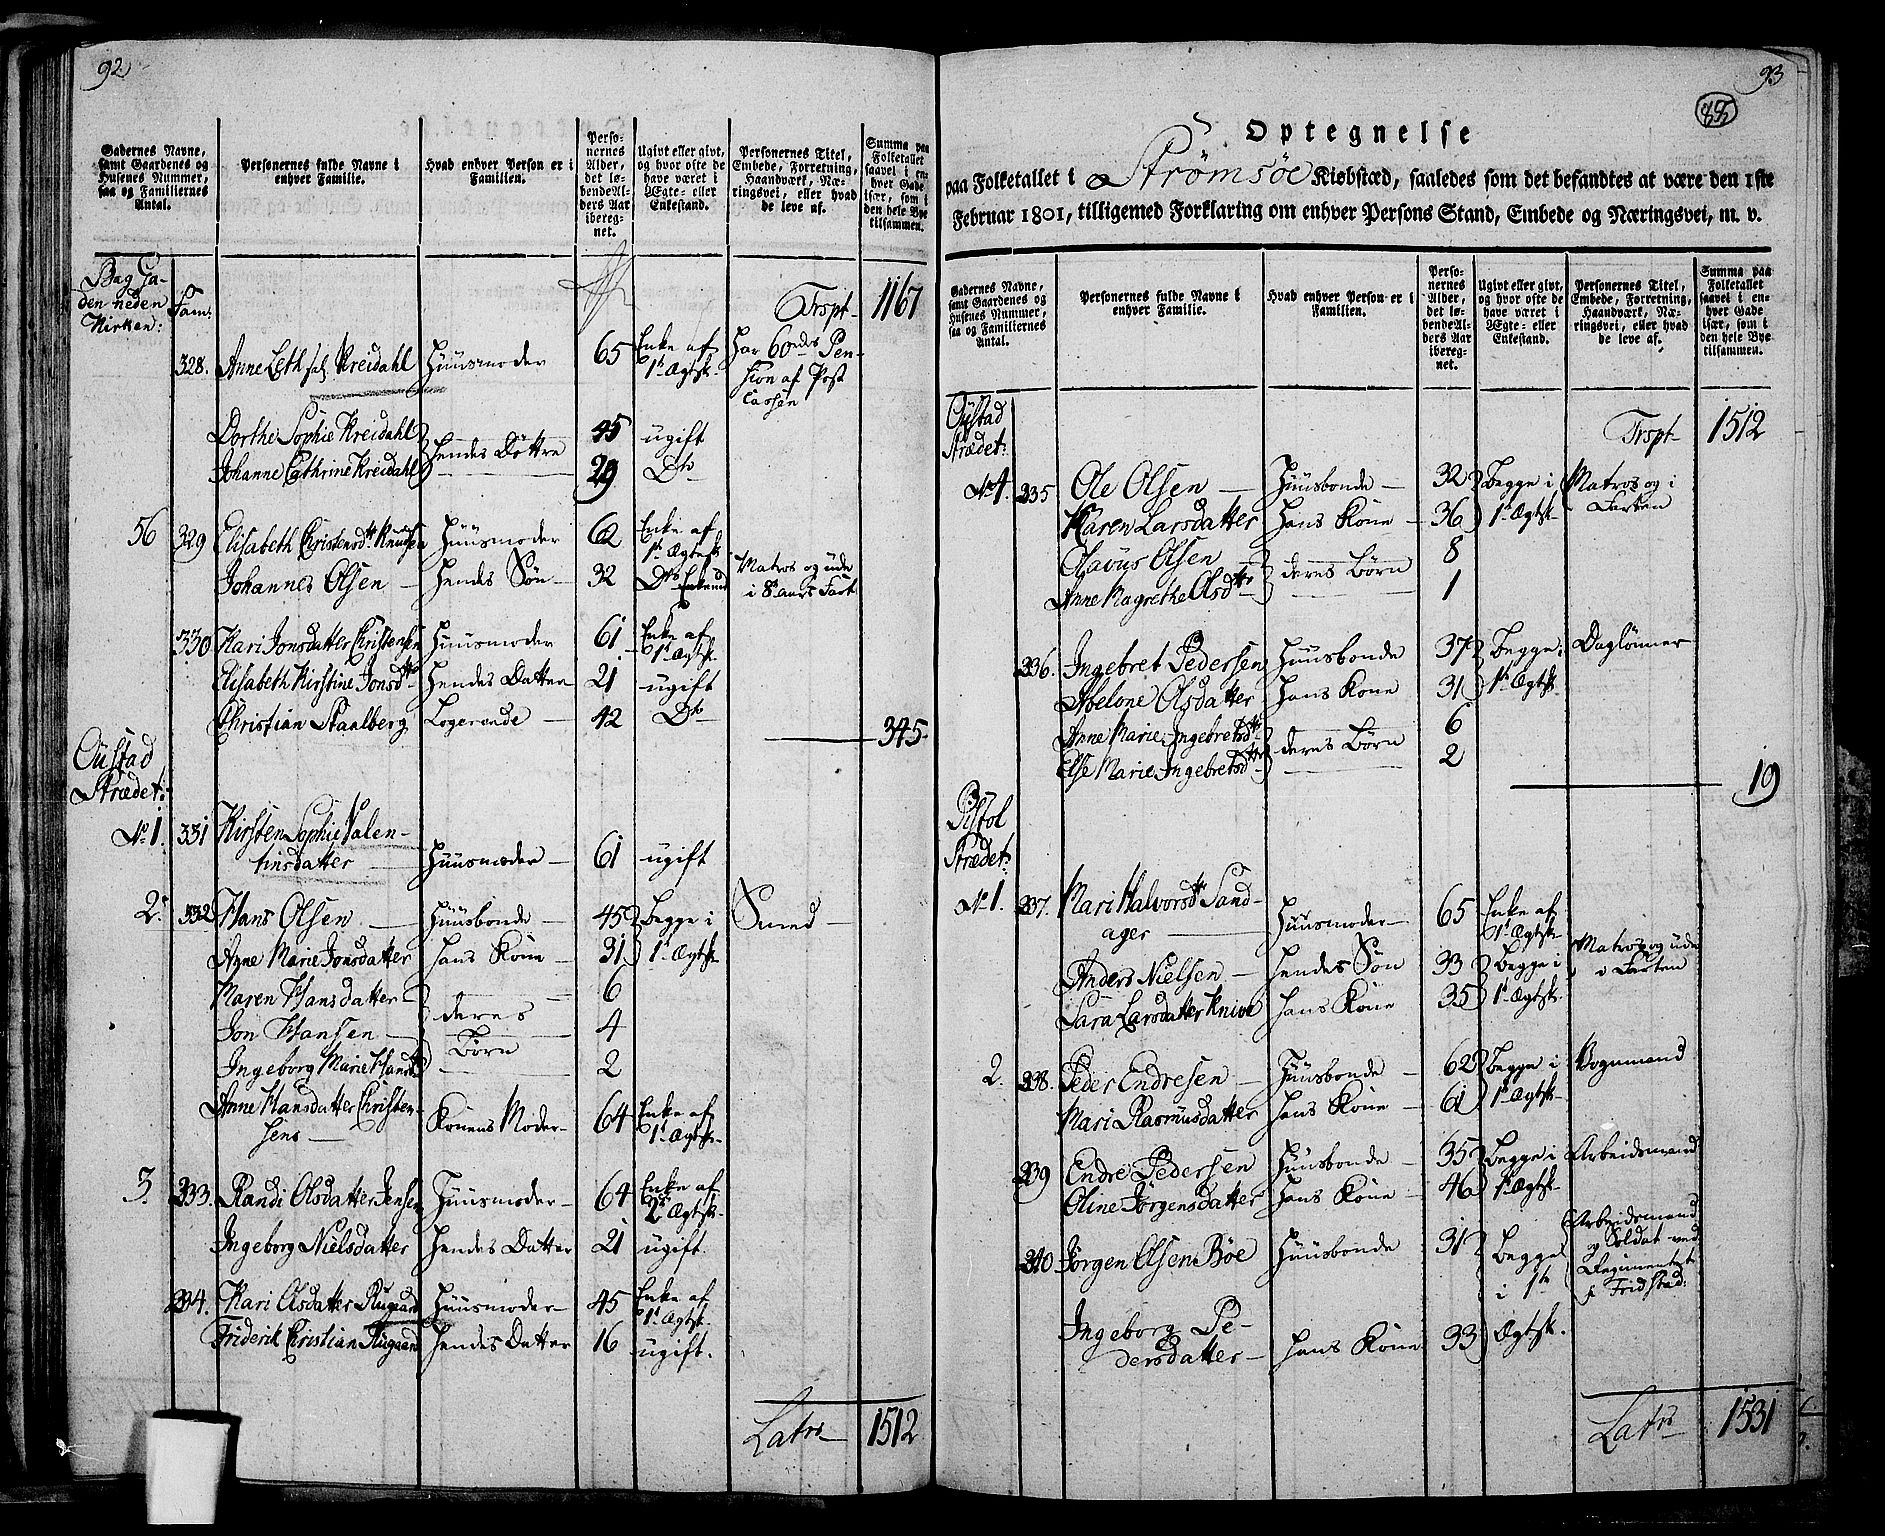 92
Gadernes Navne, samt Gaardenes og Husenes Nummer, saa og Familiernes Antal.
Personernes fulde Navne i enhver Familie.
Hvad enhver Person er i Familien.
Personernes Alder, det løbende Alders Aar iberegnet.
Ugivt eller givt, og hvor ofte de have været i Ægte- eller Enkestand.
Personernes Titel, Embede, Forretning, Haandværk, Næringsvei, eller hvad de leve af.
Summa paa Folketallet saavel i enhver Gade især, som i den hele Bye tilsammen.
Bag Ga-
den neden
Kirken:
Fam:
Trspt 1167
328. Anne Leth sal. Kreidahl Huusmoder 65 Enke af 1t Ægtsk. Har 60 Pen-
sion af Post
Cassen
Dorthe Sophie Kreidahl 45 ugift
Hendes Döttre
Johanne Cathrine Kreidahl 29 Do
56 329 Elisabeth Christensdtr Knudsen Huusmoder 62 Enke af 1t Ægtesk
Johannes Olsen Hendes Søn 32 Do Enkemd Matros og ude
i 8 aars Fart
330 Kari Jonsdatter Christensen Huusmoder 61 Enke af 1t Ægtsk
Elisabeth Kirstine Jonsdtr Hendes Datter 21 ugift
Christian Staalberg Logerende 42 Do
345
Oustad
Strædet:
No 1. 331 Kirsten Sophie Valen-
tinsdatter Huusmoder 61 ugift
2. 332 Hans Olsen Huusbonde 45 Begge i Smed
Anne Marie Jonsdatter Hans Kone 31 1t Ægtsk
Maren Hansdatter 6
deres
Jon Hansen 4
Børn
Ingeborg Marie Hansd 2
Anne Hansdatter Christen-
sens Konens Moder 64 Enke af 1t Ægtsk
3. 333. Randi Olsdatter Jensen Huusmoder 64 Enke af 2t Ægtsk.
Ingeborg Nielsdatter Hendes Datter 21 ugift.
334. Kari Olsdatter Rugaard Huusmoder 45 Enke af 1t Ægtsk.
Friderik Christian Rugaard Hendes Datter 16 ugift.
Latrs 1512
93
Optegnelse
paa Folketallet i Strømsøe Kiøbstæd, saaledes som det befandtes at være den 1ste
Februar 1801, tilligemed Forklaring om enhver Persons Stand, Embede og Næringsvei, m. v.
Gadernes Navne, samt Gaardenes og Husenes Nummer, saa og Familiernes Antal.
Personernes fulde Navne i enhver Familie.
Hvad enhver Person er i Familien.
Personernes Alder, det løbende Alders Aar iberegnet.
Ugivt eller givt, og hvor ofte de have været i Ægte- eller Enkestand.
Personernes Titel, Embede, Forretning, Haandværk, Næringsvei, eller hvad de leve af.
Summa paa Folketallet saavel i enhver Gade især, som i den hele Bye tilsammen.
Oustad
Strædet:
Trspt 1512
No 4. 335 Ole Olsen Huusbonde 32 Begge i Matros og i
Karen Larsdatter Hans Kone 36 1t Ægtsk Farten
Olavus Olsen 8
deres Børn
Anne Magrethe Olsdtr 1
336. Ingebret Pedersen Huusbonde 37 Begge i Daglönner
Abelone Olsdatter Hans Kone 31 1t Ægtsk
Anne Marie Ingebretsdtr 6
deres Børn
Else Marie Ingebretsdtr 2
19
Pistol
Strædet:
No 1. 337. Mari Halvorsdtr Sand-
ager Huusmoder 65 Enke af 1t Ægtsk
Anders Nielsen Hendes Søn 33 Begge i Matros og ude
Sara Larsdatter Knive Hans Kone 35 1t Ægtsk i Farten
2. 338. Peder Endresen Huusbonde 62 Begge i Vognmand
Mari Rasmusdatter Hans Kone 61 1t Ægtsk
339 Endre Pedersen Huusbonde 35 Begge i Arbeidsmand
Oline Jörgensdatter Hans Kone 46 1t Ægtsk
340 Jørgen Olsen Bøe Huusbonde 31 Begge Arbeidsmand
i 1te og Soldat ved
Regimentet
i Fridstad:
Ingeborg Pe-
dersdatter Hans Kone 33 Ægtsk.
Latrs 1531